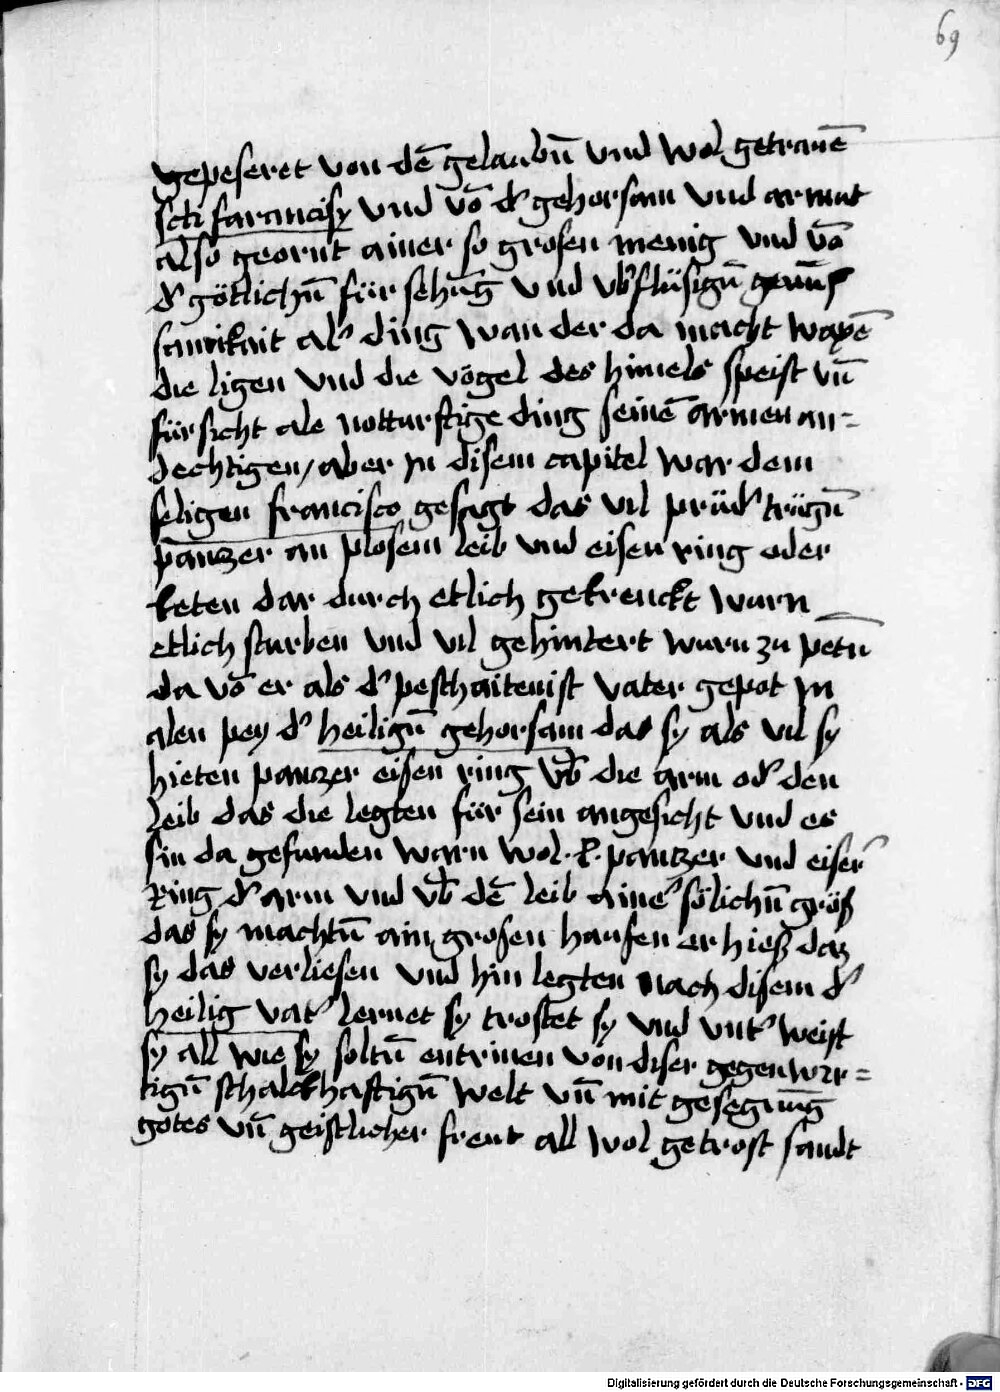 69
gepeseret von dē gelaubn̄ vnd wol getrauē
scti farancisy vnd vō d' gehorsam vnd armut
also geornt ainer so grosen menig vnd vō
d' götlichn̄ für sehūg vnd vb'flüsign̄ genūg
samikait al' ding wan der da macht waxē
die ligen vnd die vögel des himels speist vn̄
fürsicht ale notturftige ding seinē armen an=
dechtigen / aber jn disem capitel war dem
seligen francisco gesagt das vil prüd' trügn̄
panzer an plosem leib vnd eisen ring oder
keten dar durch etlich gekrenckt wurn
etlich sturben vnd vil gehintert wurn zu petn̄
da vō er als d' peschaitenist vater gepot jn
alen pey d' heilign̄ gehorsam das sy als vil sy
hieten panzer eisen ring vb' die arm od' den
leib das die legten für sein angesicht vnd es
sin da gefunden warn wol · l · pantzer vnd eiser'
ring d' arm vnd vb' dē leib aine' sölichn̄ größ
das sy machtn̄ ain grosen haufen er hieß daz
sy das verliesen vnd hin legten nach disem d'
heilig vat' lernet sy trostet sy vnd vnt' weist
sy all wie sy soltn̄ entrinen von diser gegenwir=
tign̄ schalckhaftign̄ welt vn̄ mit gesegnūg
gotes vn̄ geistlicher freut all wol getrost sandt
Digitalisierung gefördert durch die Deutsche Forschungsgemeinschaft - DFG